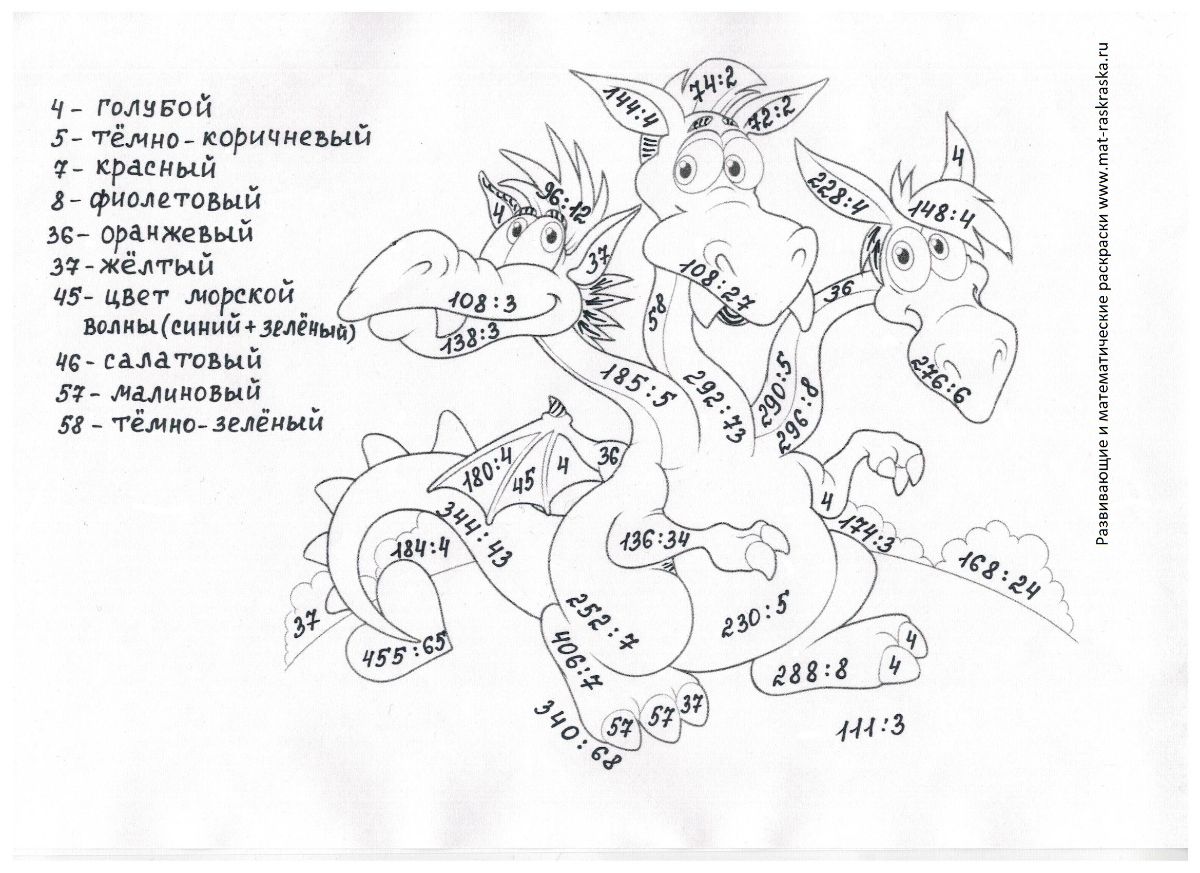 4 - голубой
5 - тёмно-коричневый
7 - красный
8 - фиолетовый
36 - оранжевый
37 - жёлтый
45 - цвет морской
волны (синий + зелёный)
46 - салатовый
57 - малиновый
58 - тёмно-зелёный
74:2
144:4
72:2
4
96:12
4
37
228:4
148:4
108:3
138:3
108:27
58
36
276:6
185:5
292:73
290:5
296:8
180:4
45
4
36
4
344:43
184:4
136:34
174:3
168:24
37
455:65
252:7
230:5
406:7
288:8
4
4
340:68
57
57
37
111:3
Развивающие и математические раскраски www.mat-raskraska.ru